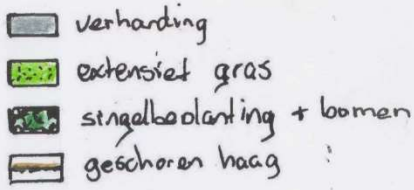 verharding
extensief gras
singelbeplanting + bomen
geschoren haag